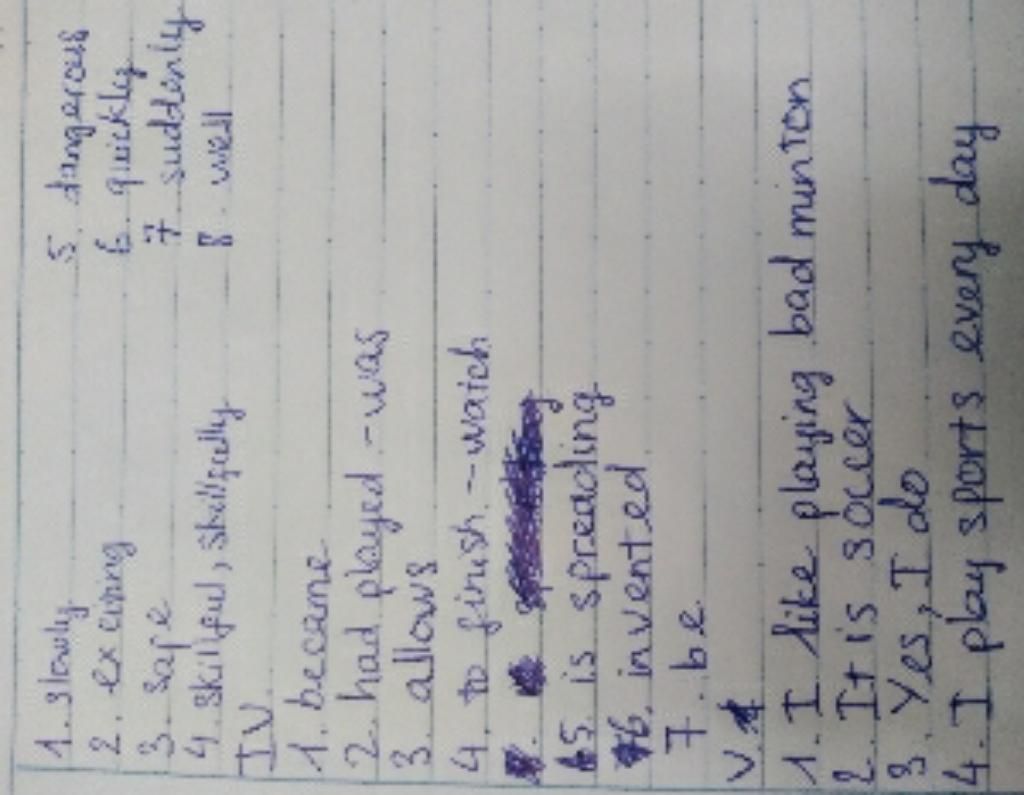 1. slowly 5. dangerous
2. exciting 6. quickly
3. safe 7. suddenly
4. skilful, skillfully 8. well
IV
1. became
2. had played - was
3. allows
4. to finish - watch
5. is spreading
6. invented
7. be
V.
1. I like playing badminton
2. It is soccer
3. Yes, I do
4. I play sports every day